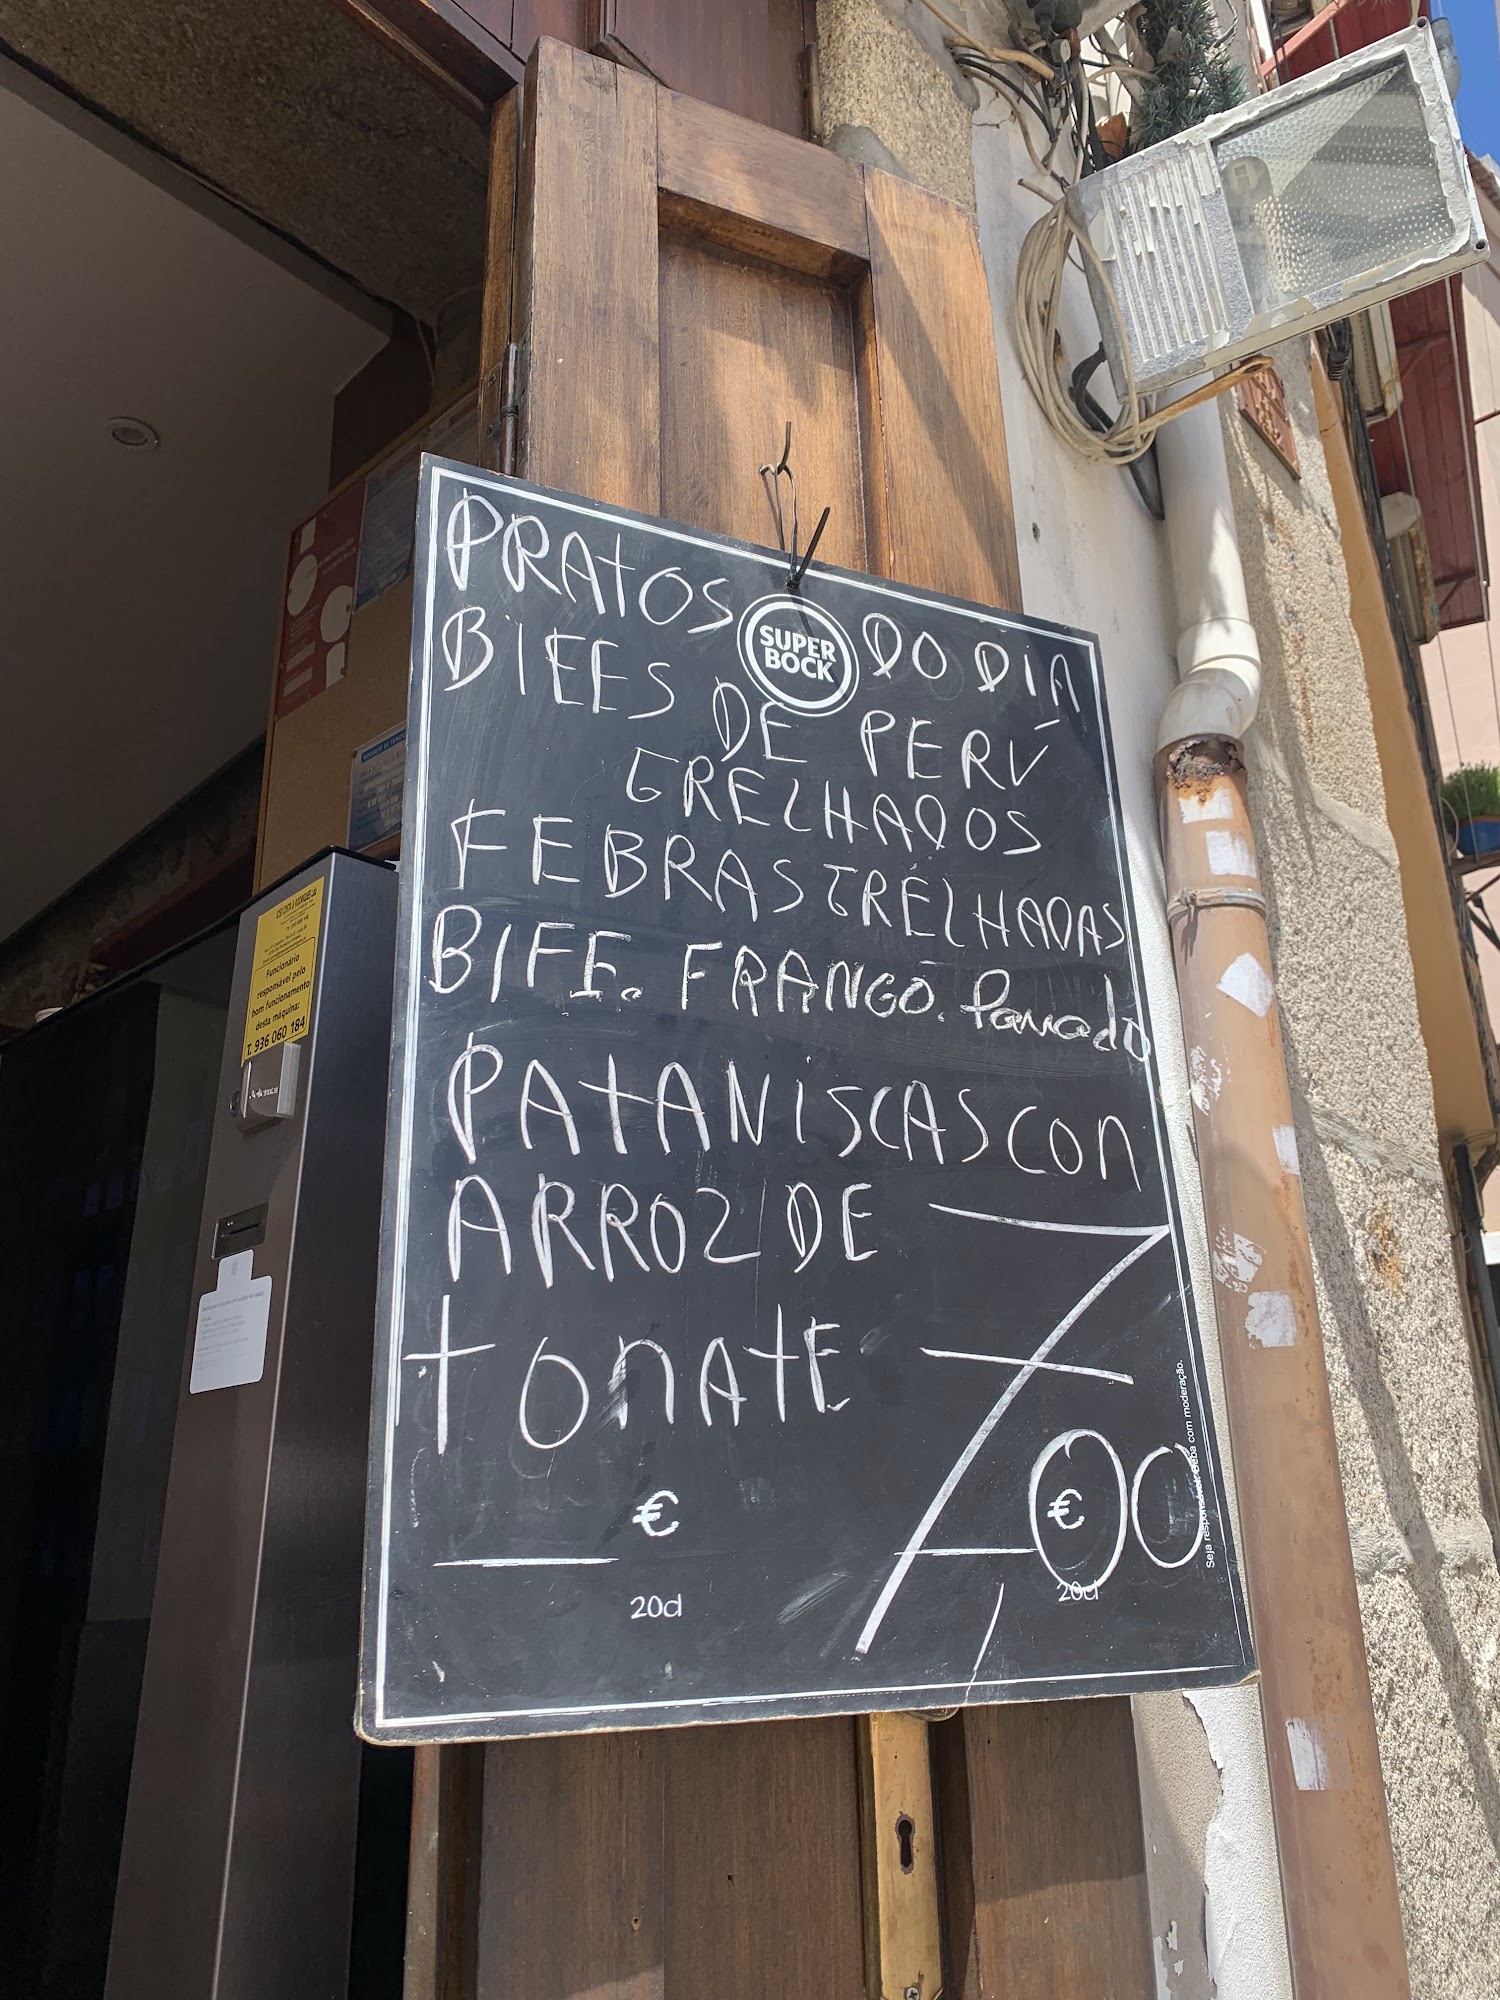 PRATOS DO DIA
SUPER
BOCK
BIFES DE PERU
GRELHADOS
FEBRAS GRELHADAS
BIFE. FRANGO. Panado
PATANISCAS CON
ARROZ DE
tonATE
7,00
€
€
20cl
20cl
Seja responsável. Beba com moderação.
Funcionário
responsável pelo
bom funcionamento
desta máquina:
T. 936 060 184